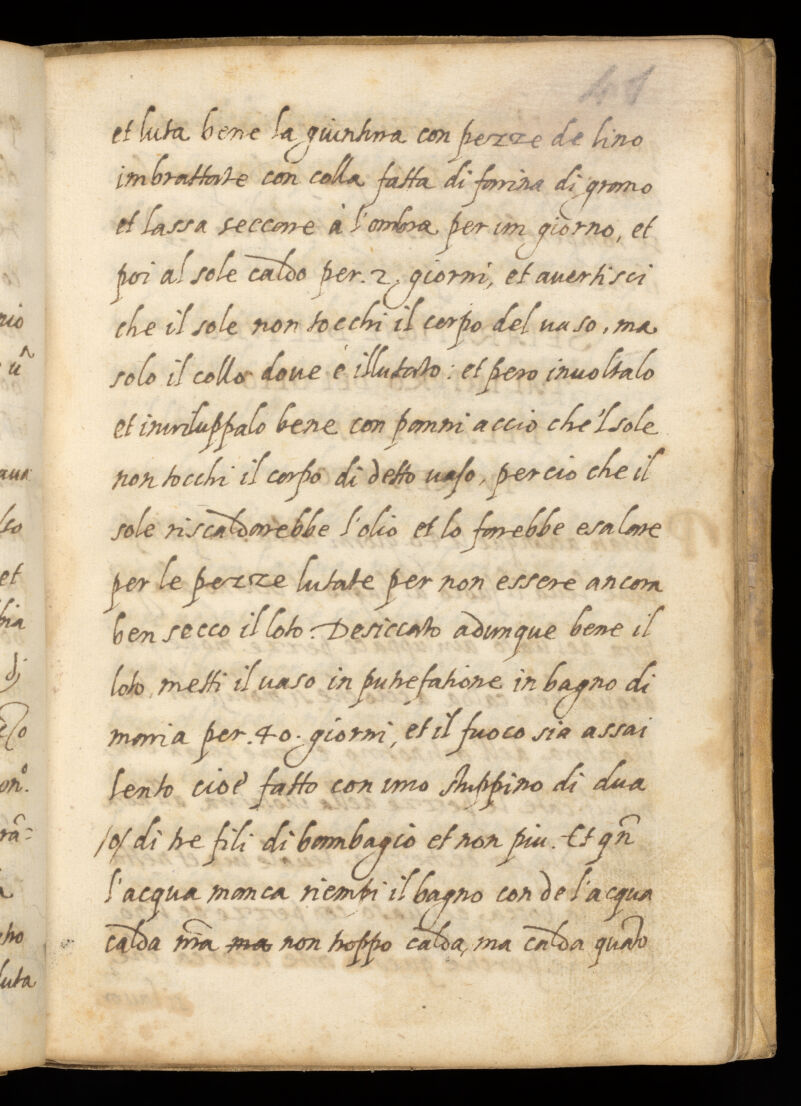 41
et luta bene la giuntura con pezze de lino
imbrattate con colla fatta di farina di grano
et lassa seccare à l'ombra per un giorno, et
poi al sole caldo per .2. giorni, et auertisci
che il sole non tocchi il corpo del uaso, ma
solo il collo doue è illutato: et pero inuoltalo
et inuiluppalo bene con panni accio che'l sole
non tocchi il corpo di detto uaso, percio che il
sole riscaldarebbe l'olio et lo farebbe esalare
per le pezze lutate per non essere ancora
ben secco il loto. Desiccato adunque bene il
loto, metti il uaso in putrefatione in bagno di
maria per .40. giorni, et il fuoco sia assai
lento cioè fatto con uno stuppino di dua
/o/ di tre fili di bambagio et non piu. Et qñ
l'acqua manca riempi il bagno con de l'acqua
calda mã ma non troppo calda, ma calda quãto